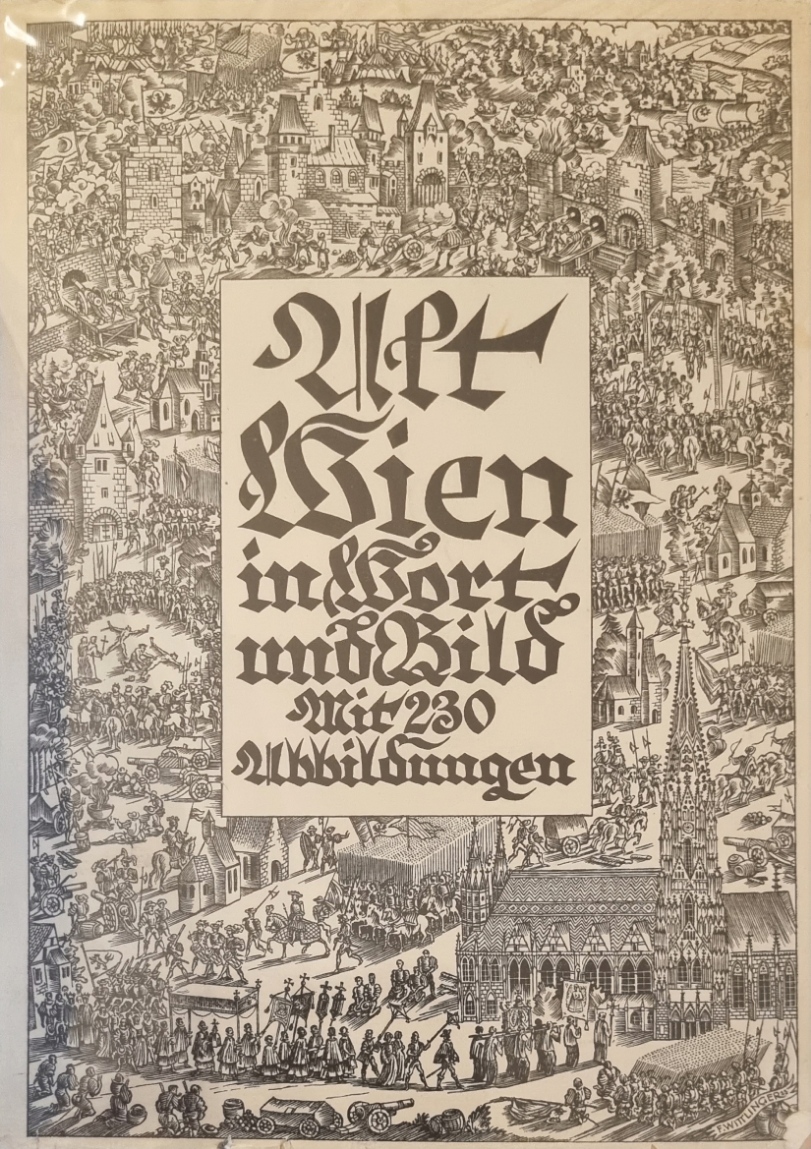 Alt
Wien
in Wort
und Bild
Mit 230
Abbildungen
F. WITLINGER